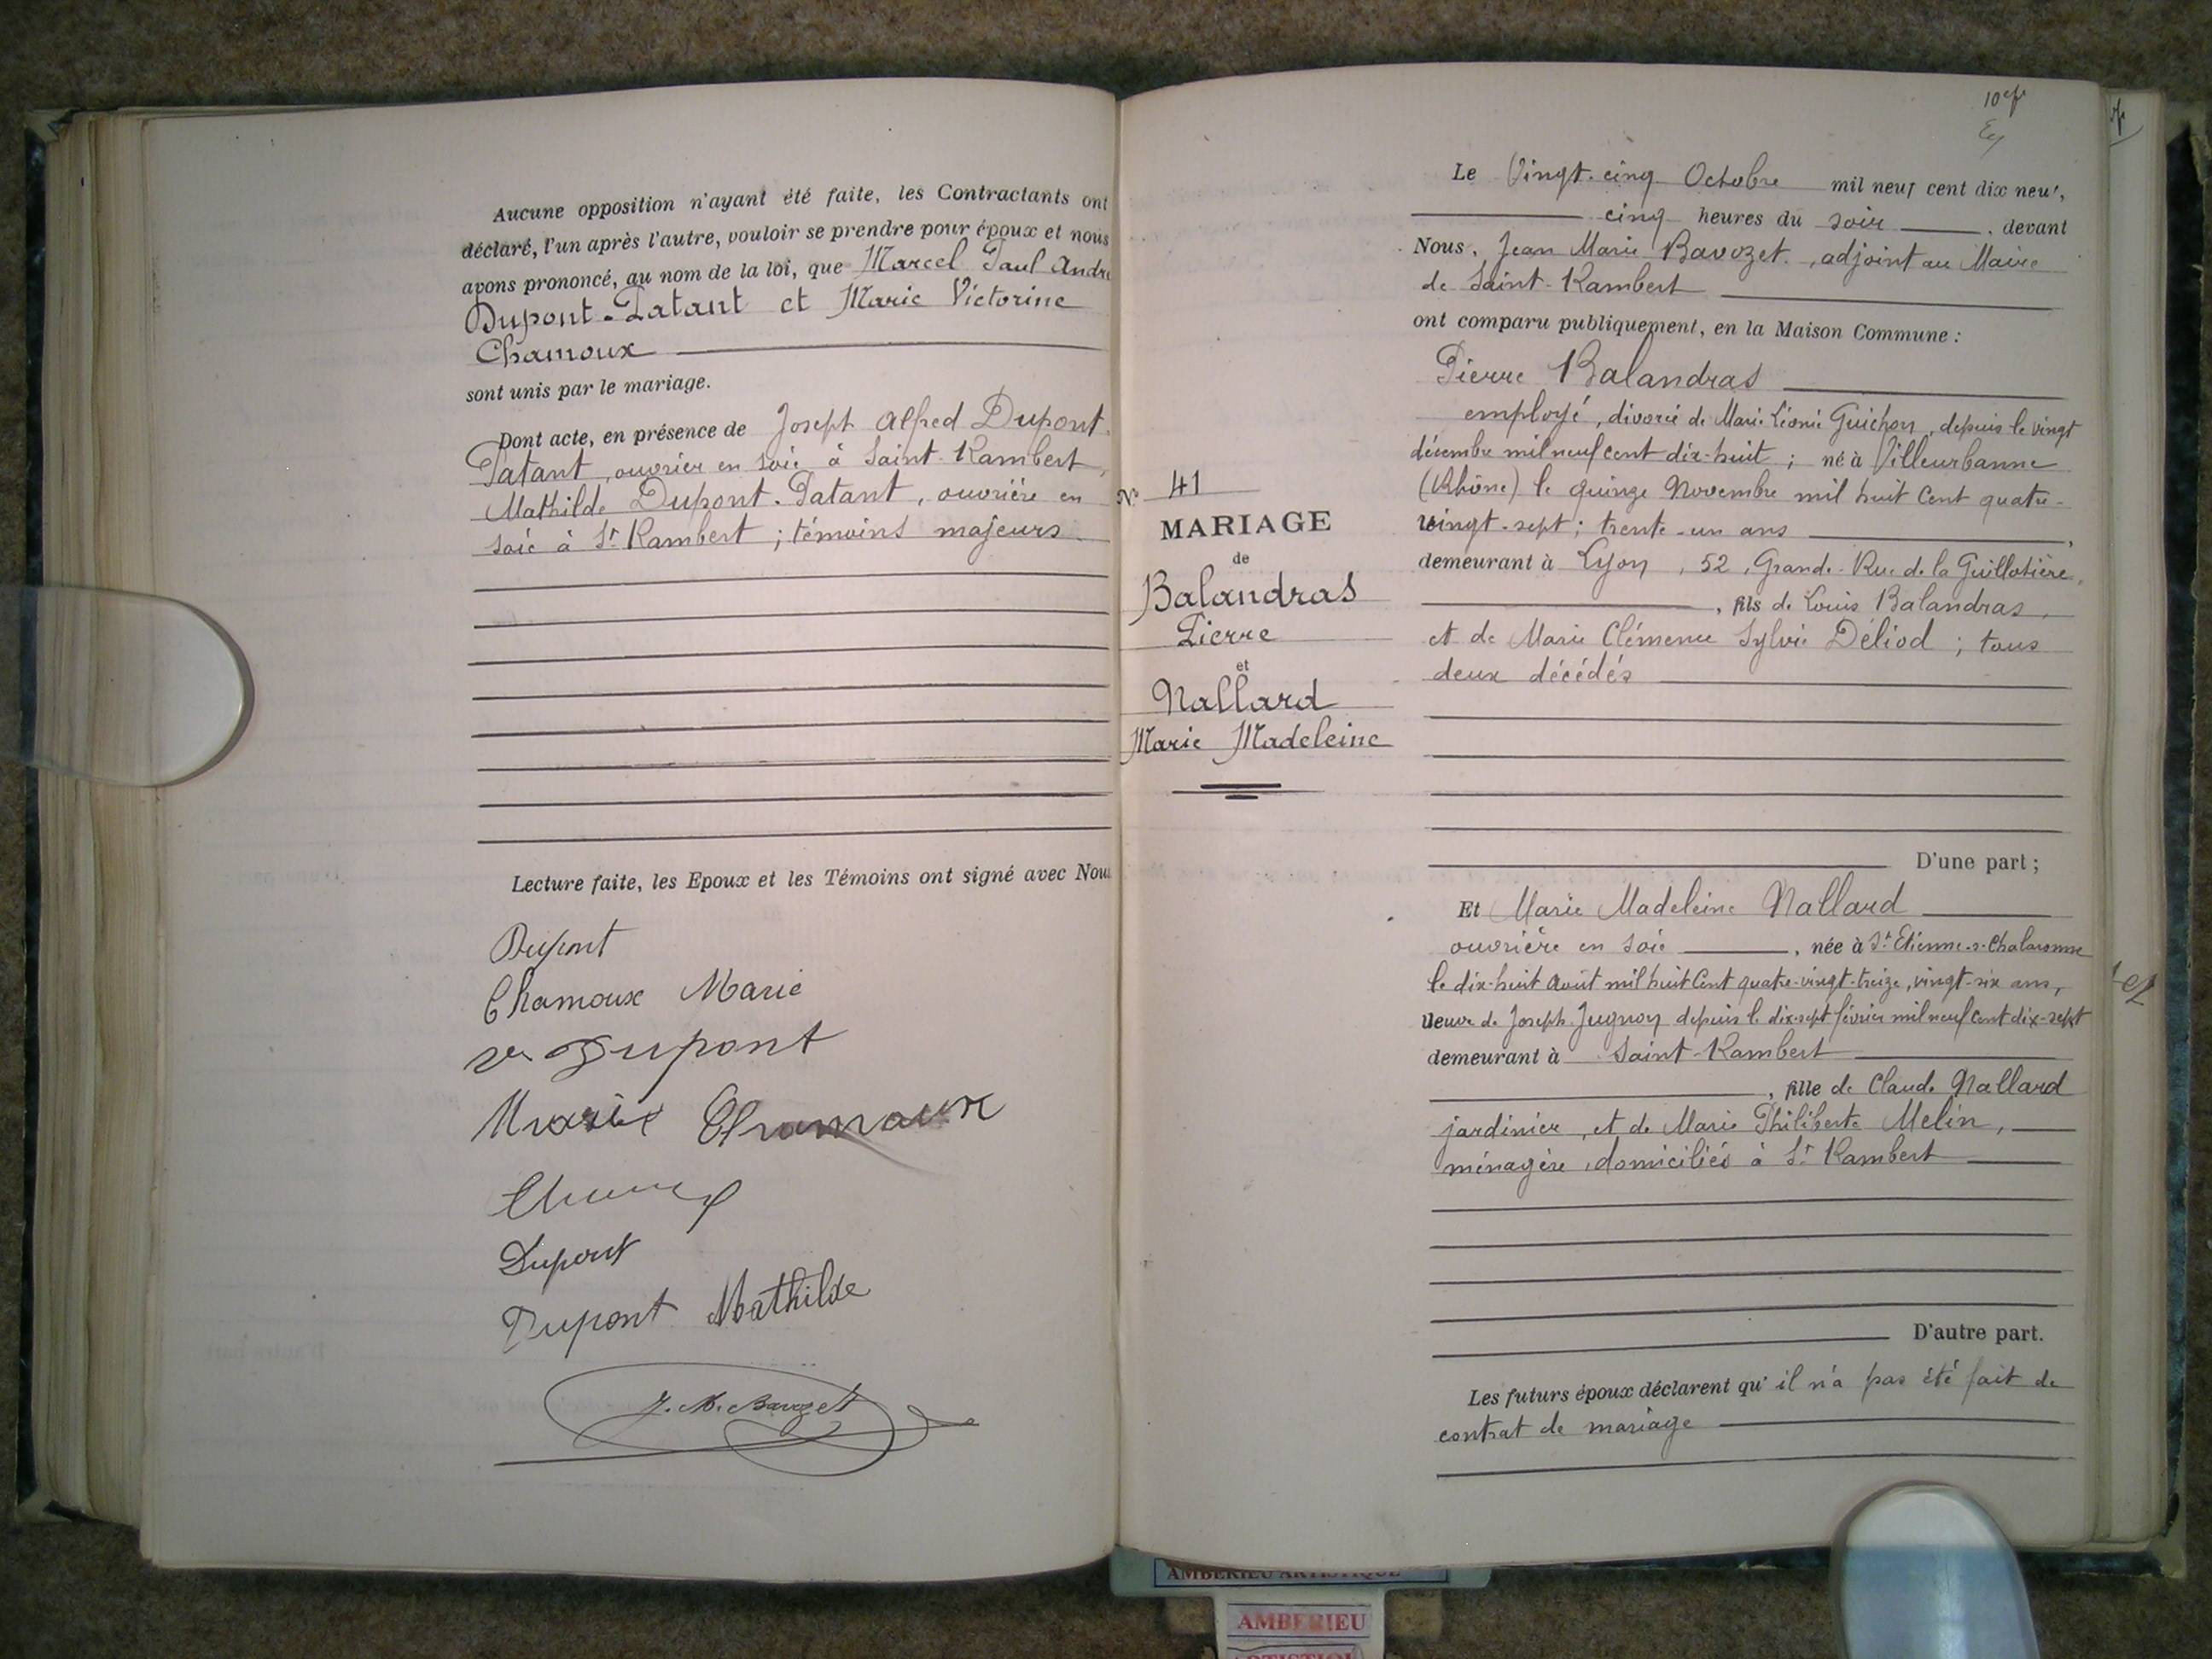 Aucune opposition n'ayant été faite, les Contractants ont
déclaré, l'un après l'autre, vouloir se prendre pour époux et nous
avons prononcé, au nom de la loi, que Marcel Paul André
Dupont-Patant et Marie Victorine
Chamoux
sont unis par le mariage.
Dont acte, en présence de Joseph Alfred Dupont-
Patant, ouvrier en soie à Saint-Rambert,
Mathilde Dupont-Patant, ouvrière en
soie à St Rambert ; témoins majeurs
Lecture faite, les Epoux et les Témoins ont signé avec Nous
Dupont
Chamoux Marie
Dupont
Marie Chamoux
Dupont
Dupont Mathilde
J. M. Bavozet
N° 41
MARIAGE
de
Balandras
Pierre
et
Nallard
Marie Madeleine
Le Vingt-cinq Octobre mil neuf cent dix neuf,
cinq heures du soir, devant
Nous, Jean Marie Bavozet, adjoint au Maire
de Saint-Rambert
ont comparu publiquement, en la Maison Commune :
Pierre Balandras
employé, divorcé de Marie Léonie Guichon, depuis le vingt
décembre mil neuf cent dix-huit ; né à Villeurbanne
(Rhône) le quinze Novembre mil huit cent quatre-
vingt-sept ; trente-un ans,
demeurant à Lyon, 52, Grande-Rue de la Guillotière,
, fils de Louis Balandras,
et de Marie Clémence Sylvie Déliod ; tous
deux décédés
D'une part ;
Et Marie Madeleine Nallard
ouvrière en soie, née à St Etienne-s-Chalaronne
le dix-huit Août mil huit cent quatre-vingt-treize, vingt-six ans,
veuve de Joseph Jugnon depuis le dix-sept février mil neuf cent dix-sept
demeurant à Saint-Rambert
, fille de Claude Nallard
jardinier, et de Marie Philiberte Melin,
ménagère, domiciliés à St Rambert
D'autre part.
Les futurs époux déclarent qu'il n'a pas été fait de
contrat de mariage
AMBERIEU ARTISTIQUE
AMBERIEU